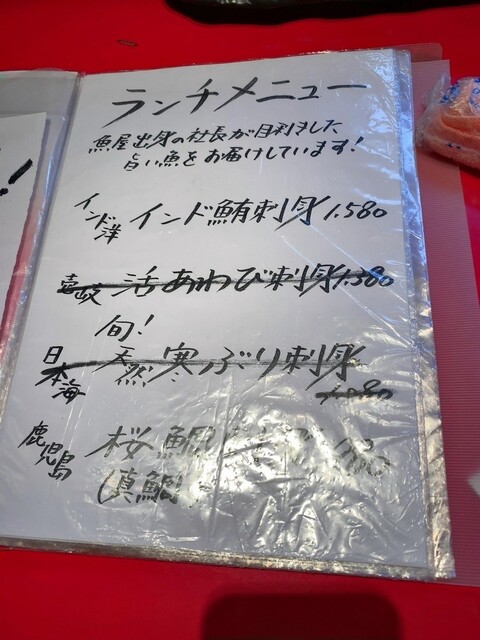 ランチメニュー
魚屋出身の社長が目利きした
旨い魚をお届けしています!
インド洋 インド鮪刺身 1.580
壱岐 活あわび刺身 1.380
旬!
日本海 天然寒ぶり刺身
鹿児島 桜鯛
(真鯛)